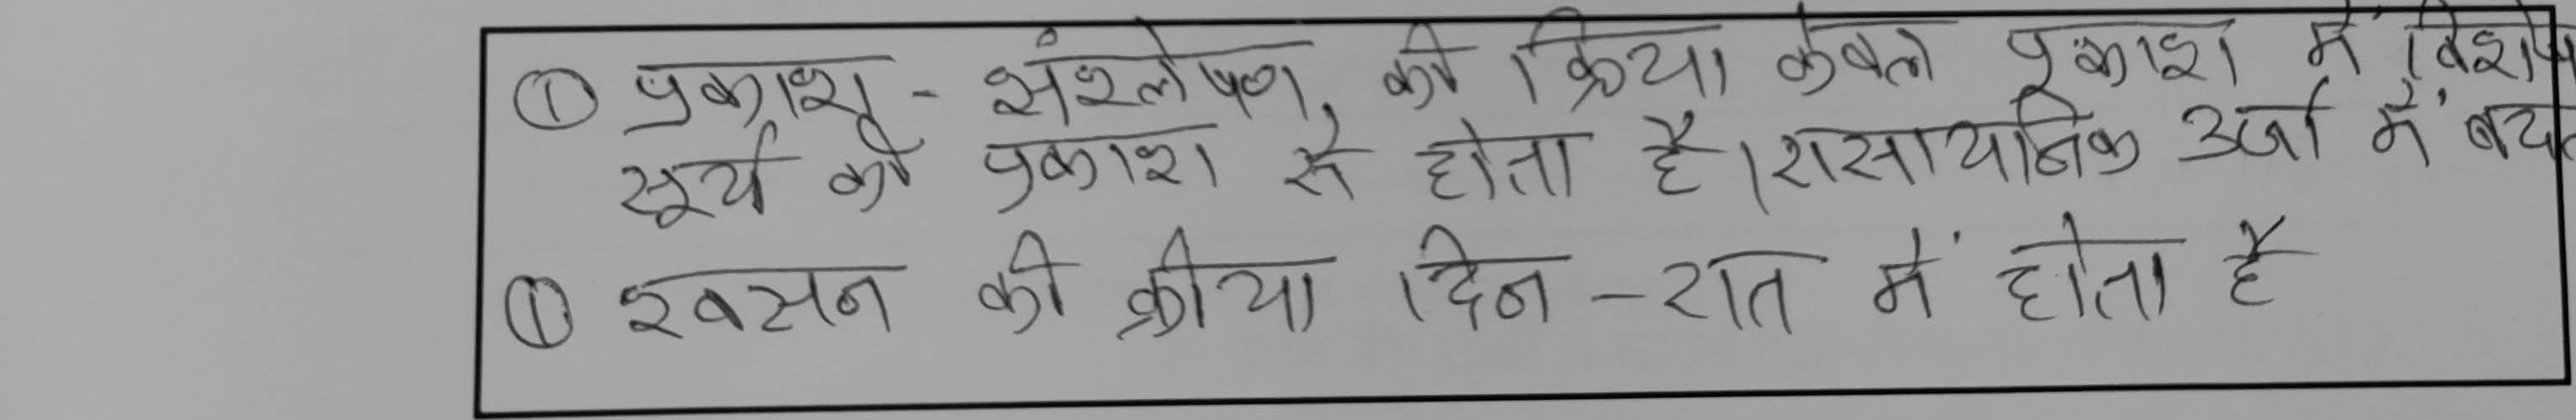 ① प्रकाश - संश्लेषण, की क्रिया केवल प्रकाश में विशेष
सूर्य की प्रकाश से होता है। रासायनिक उर्जा में
① श्वसन की क्रीया दिन - रात में होता है